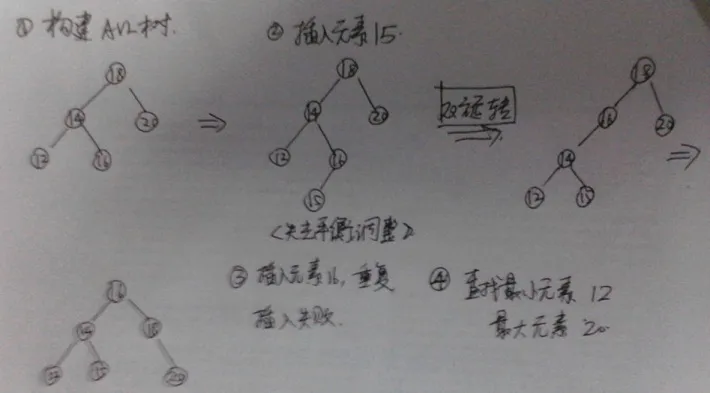 ① 构建 AVL树.
② 插入元素15.
18
14
20
12
16
18
14
20
12
16
15
双旋转
18
16
20
14
12
15
<失去平衡调整>
16
14
18
12
15
20
③ 插入元素16, 重复
插入失败.
④ 查找最小元素 12
最大元素 20